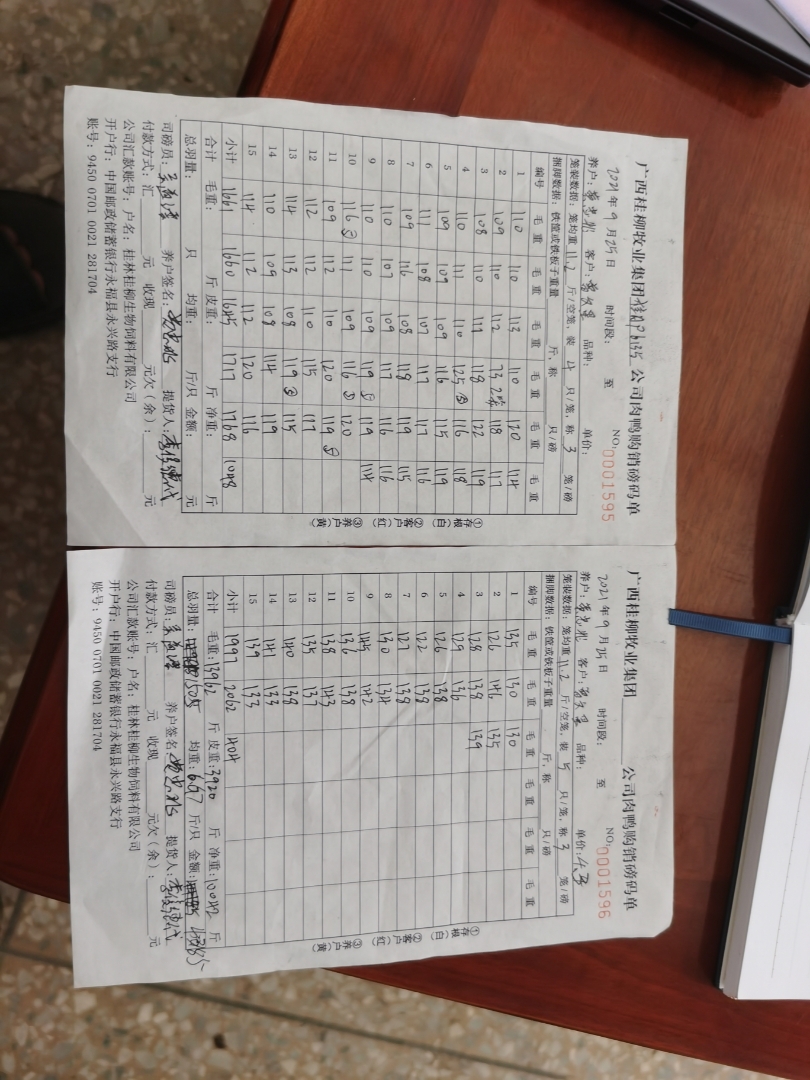 广西桂柳牧业集团 公司肉鸭购销磅码单
NO:0001595
2021年9月25日 时间段: 至
养户: 客户: 品种: 单价:
笼装数据: 笼均重11.2斤/空笼, 装4只/笼, 称3笼/磅
捆脚数据: 铁筐或铁板子重量 斤, 称 只/磅
编号 毛重 毛重 毛重 毛重 毛重 毛重
1 110 110 113 110 120 114
2 109 110 112 73 2笼 118 117
3 108 110 111 118 122 119
4 110 111 110 125⑤ 116 118
5 109 109 109 116 115 119
6 111 108 107 117 117 116
7 109 116 108 118 119 115
8 110 107 109 117 116 116
9 110 110 109 119 119 114
10 116 111 109 116 120
11 109 112 110 120 119
12 112 112 110 115 117
13 114 113 108 119 115
14 110 109 108 114 119
15 114 112 112 120 116
小计 1661 1660 1645 1717 1768 1048
合计 毛重: 斤 皮重: 斤 净重: 斤
总羽量: 只 均重: 斤/只 金额: 元
司磅员: 养户签名: 提货人:
付款方式: 汇 元 收现 元欠(余): 元
公司汇款账号: 户名: 桂林桂柳生物饲料有限公司
开户行: 中国邮政储蓄银行永福县永兴路支行
账号: 9450 0701 0021 281704
①存根(白) ②客户(红) ③养户(黄)
广西桂柳牧业集团 公司肉鸭购销磅码单
NO:0001596
2021年9月25日 时间段: 至
养户: 客户: 品种: 单价:4.3
笼装数据: 笼均重11.2斤/空笼, 装5只/笼, 称3笼/磅
捆脚数据: 铁筐或铁板子重量 斤, 称 只/磅
编号 毛重 毛重 毛重 毛重 毛重 毛重
1 135 130 130
2 126 146 135
3 128 138 139
4 129 136
5 126 138
6 122 138
7 127 138
8 130 134
9 145 142
10 136 138
11 138 143
12 135 137
13 140 138
14 141 133
15 139 133
小计 1997 2062 404
合计 毛重:13962斤 皮重:3920斤 净重:10042斤
总羽量:1505 均重:6.67斤/只 金额:
司磅员: 养户签名: 提货人:
付款方式: 汇 元 收现 元欠(余): 元
公司汇款账号: 户名: 桂林桂柳生物饲料有限公司
开户行: 中国邮政储蓄银行永福县永兴路支行
账号: 9450 0701 0021 281704
①存根(白) ②客户(红) ③养户(黄)